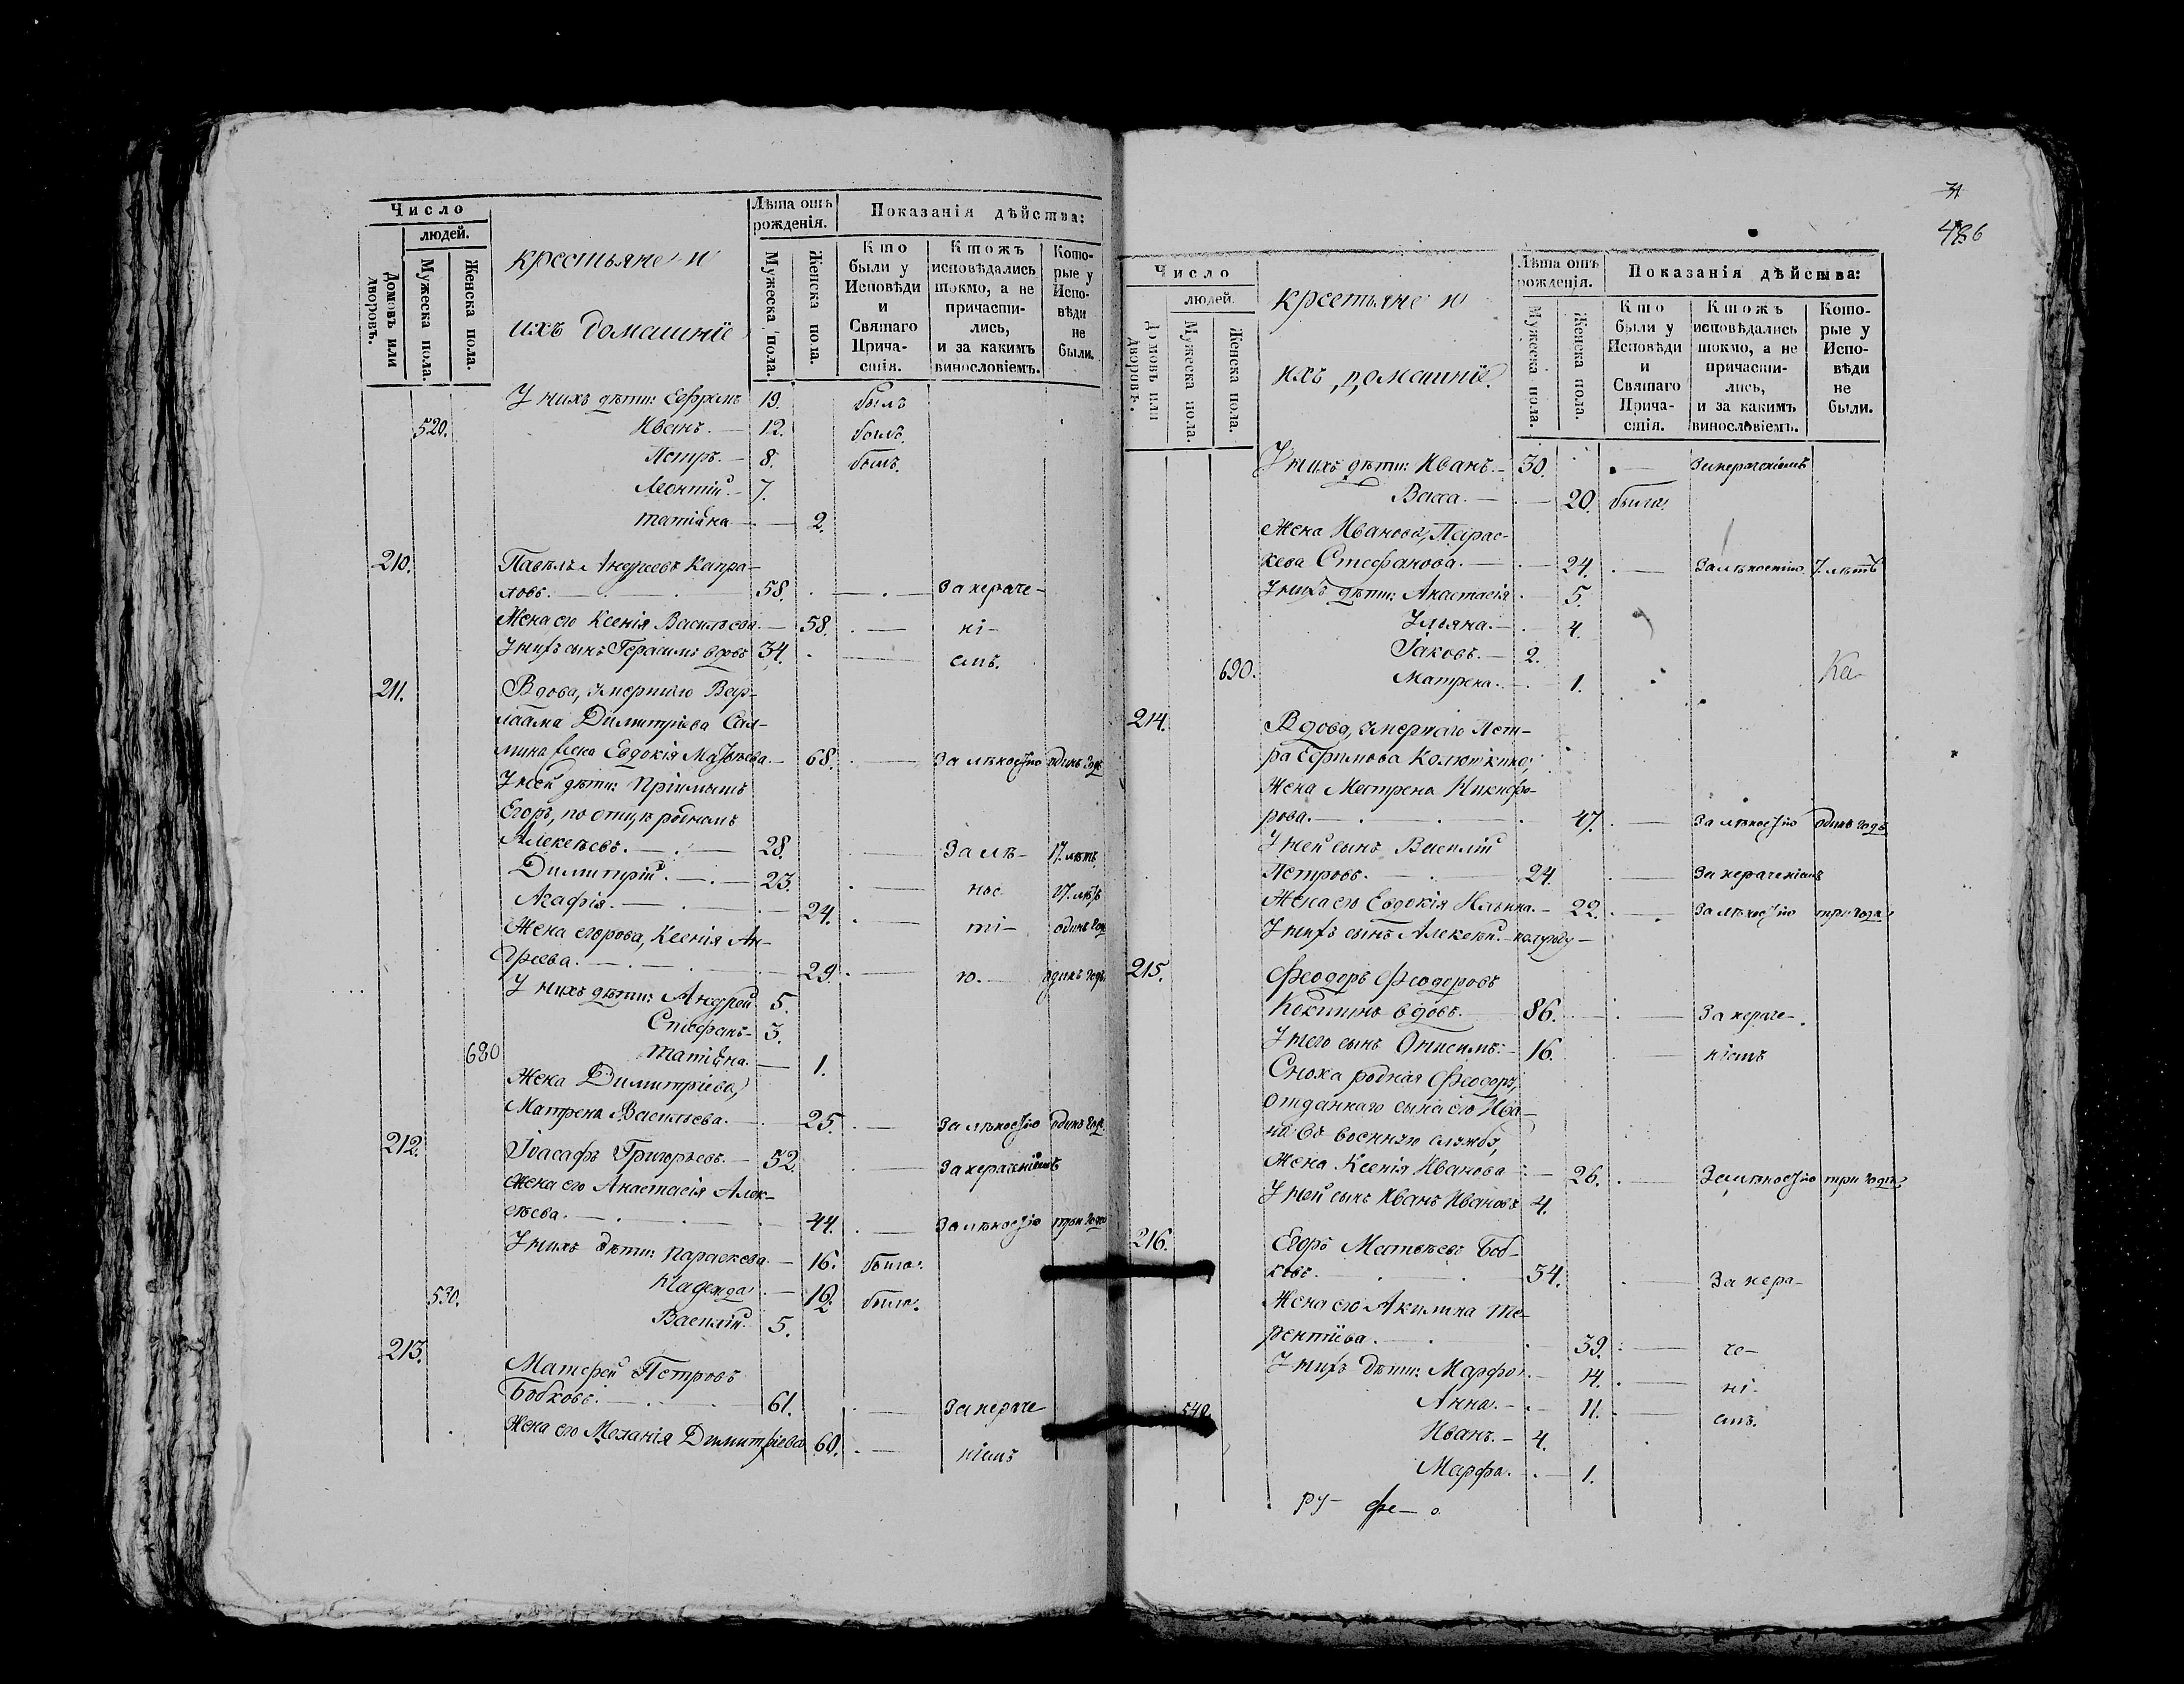 Число
людей.
Домовъ или дворовъ.
Мужеска пола.
Женска пола.
крестьяне и
ихъ домашніе
Лѣта отъ рожденія.
Мужеска пола.
Женска пола.
Показанія дѣйства:
Кто были у Исповѣди и Святаго Прича-стія.
Ктожъ исповѣдались токмо, а не причасти-лись, и за какимъ винословіемъ.
Кото-рые у Испо-вѣди не были.
У нихъ дѣти: Ефремъ 19. былъ
520. Иванъ. — 12. былъ.
Петръ. — 8. былъ.
Леонтій. — 7.
Татіяна — 2.
210. Павелъ Андреевъ Капра-
ловъ. — 58. — За нераче-
Жена его Ксенія Васильева. — 58. — ні-
У нихъ сынъ Герасимъ вдовъ 34. — емъ.
211. Вдова, умершаго Вар-
лаама Димитріева Сал-
мина жена Евдокія Матвѣева. — 68. — За лѣностію одинъ годъ
У ней дѣти: пріимышъ
Егоръ, по отцѣ родномъ
Алексѣевъ. — 28. — За лѣ- 17. лѣтъ.
Димитрій. — 23. — нос 17. лѣтъ
Агафія. — 24. — ті- одинъ годъ
Жена Егорова, Ксенія Ан-
дреева. — 29. — ю. — одинъ годъ
У нихъ дѣти: Андрей 5.
Стефанъ — 3.
680 Татіяна. — 1.
Жена Димитріева,
Матрена Васильева. — 25. — За лѣностію одинъ год.
212. Іоасафъ Григорьевъ. — 52. — За нераченіемъ
Жена его Анастасія Алек-
сѣева. — 44. — За лѣностію три года
У нихъ дѣти: Параскева — 16. была.
Надежда — 12. была.
530. Василій. 5.
213. Матфей Петровъ
Бобковъ. — 61. — За нераче
Жена его Меланія Димитріева 60. — ніемъ
486
Число
людей.
Домовъ или дворовъ.
Мужеска пола.
Женска пола.
крестьяне и
ихъ домашніе.
Лѣта отъ рожденія.
Мужеска пола.
Женска пола.
Показанія дѣйства:
Кто были у Исповѣди и Святаго Прича-стія.
Ктожъ исповѣдались токмо, а не причасти-лись, и за какимъ винословіемъ.
Кото-рые у Испо-вѣди не были.
У нихъ дѣти: Иванъ. — 30. — За нераченіемъ
Васса. — 20. была.
Жена Иванова, Парас-
кева Стефанова. — 24. — За лѣностію 7. лѣтъ
У нихъ дѣти: Анастасія — 5.
Ульяна. — 4.
Іаковъ. — 2.
690. Матрена. — 1. Ка-
214. Вдова, умершаго Пет-
ра Ефимова Колюткина,
Жена Матрена Никифо-
рова. — 47. — За лѣностію одинъ годъ
У ней сынъ Василій
Петровъ. — 24. — За нераченіемъ
Жена его Евдокія Ильина. — 22. — За лѣностію три года
У нихъ сынъ Алексѣй. — полугоду —
215. Феодоръ Феодоровъ
вдовъ. 86. — За нераче-
У него сынъ Онисимъ. — 16. — ніемъ
Сноха родная Феодору,
отданнаго сына его Ива-
на въ военную службу,
жена Ксенія Иванова — 26. — За лѣностію три года
У ней сынъ Иванъ Ивановъ 4.
216. Егоръ Матвѣевъ Боб-
ковъ. — 34. — За нера-
Жена его Акилина Те-
рентіева. — 39. — че-
У нихъ дѣти: Марфа. — 14. — ні-
540. Анна. — 11. — емъ.
Иванъ. — 4.
Марфа. — 1.
ру- фе-